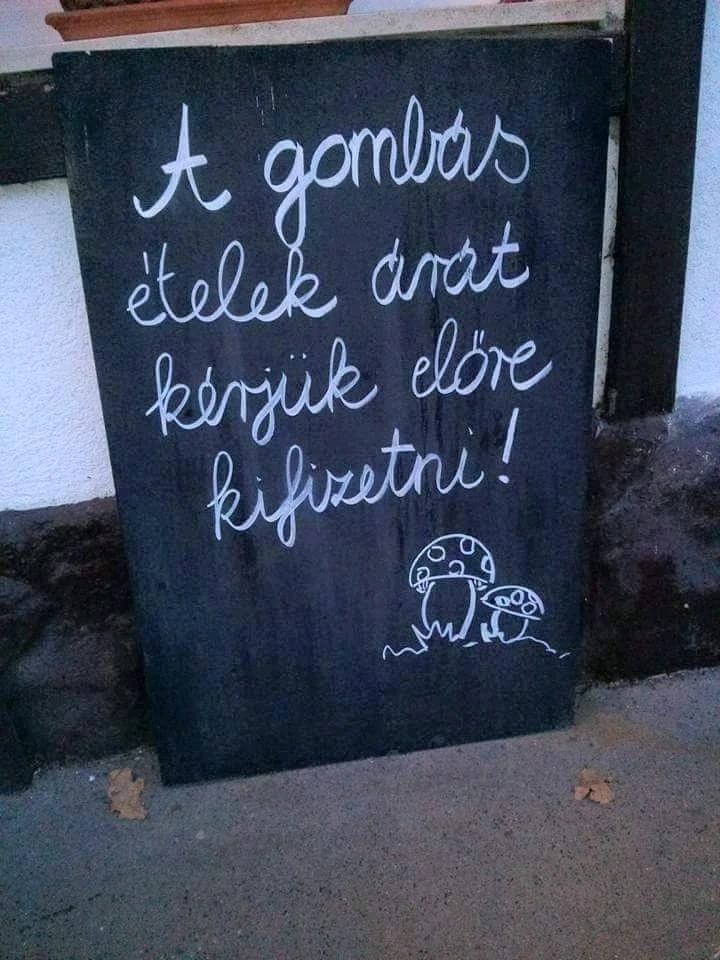 A gombás
ételek árát
kérjük előre
kifizetni!